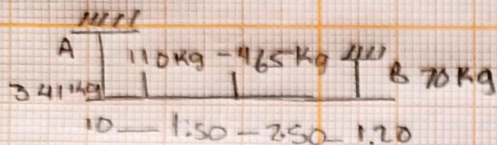 A 110Kg - 465 Kg B 70 Kg
341Kg
10 — 1.50 - 2.50 - 1.20